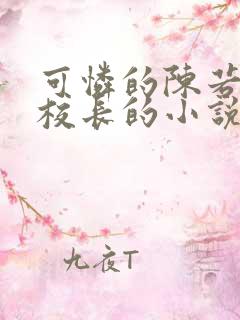 可憐的陳若
校長的小說
九夜T